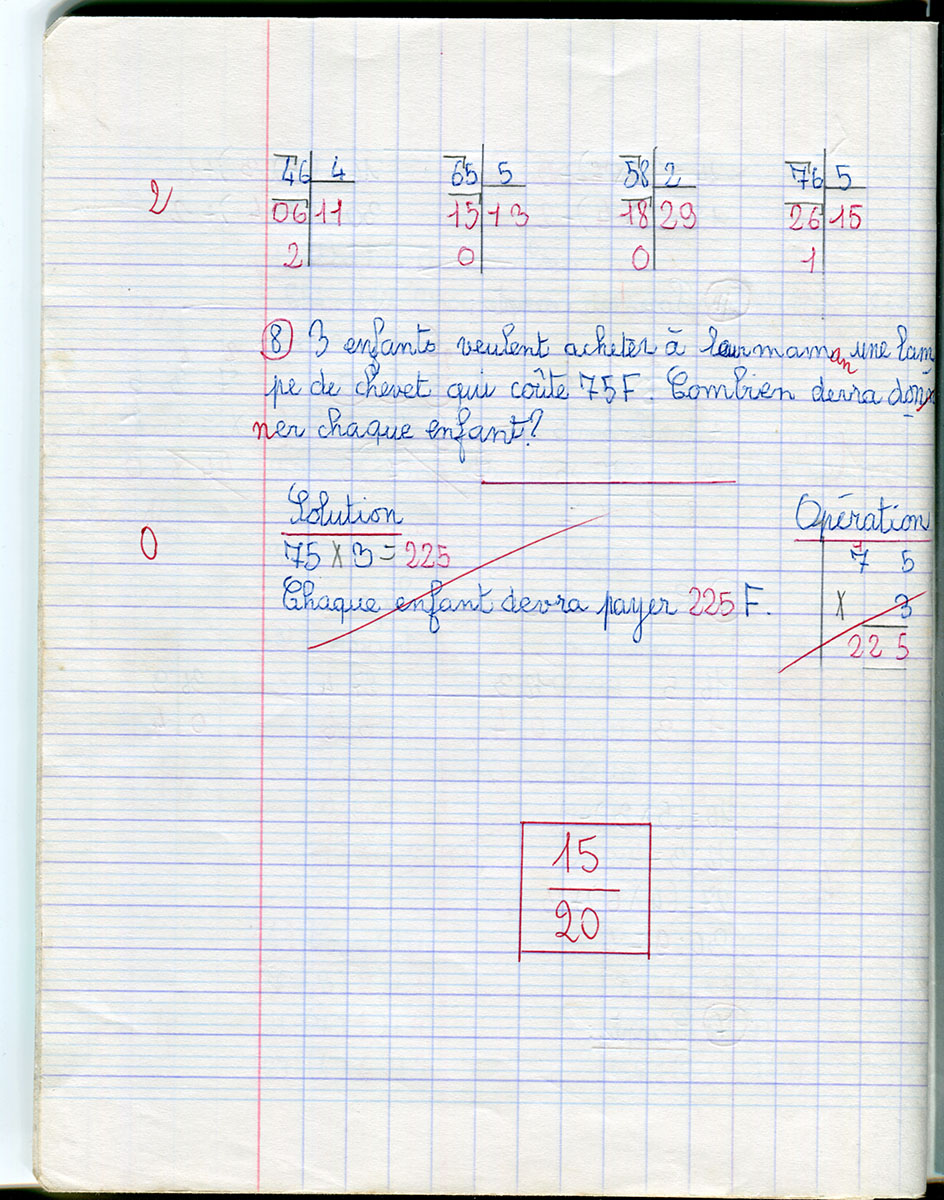 46 4 65 5 58 2 76 5
2 06 11 15 13 18 29 26 15
2 0 0 1
8 3 enfants veulent acheter à leur maman une lam
pe de chevet qui coûte 75F. Combien devra don
ner chaque enfant?
Solution Opération
0 75 x 3 = 225 7 5
Chaque enfant devra payer 225 F. x 3
225
15
20